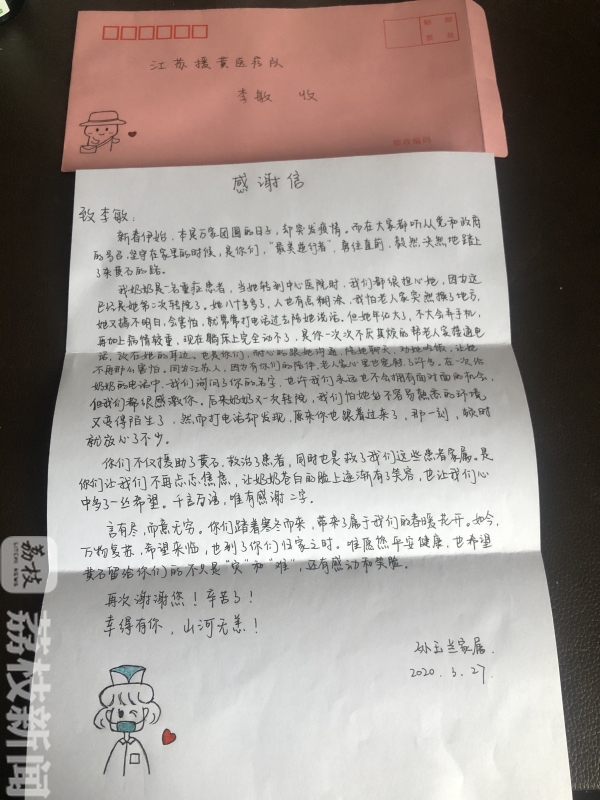 邮政编码
江苏援黄医疗队
李敏 收
感谢信
致李敏：
新春伊始，本是万家团圆的日子，却突发疫情。而在大家都听从党和政府
的号召，坚守在家里的时候，是你们，“最美逆行者”，勇往直前，毅然决然地踏上
了来黄石的路。
我奶奶是一名重症患者，当她转到中心医院时，我们都很担心她，因为这
已经是她第二次转院了。她八十多岁了，人也有点糊涂，我怕老人家突然换了地方，
她又搞不明白，会害怕，就常常打电话过去陪她说话。但她年纪大了，不大会弄手机，
再加上病情较重，现在躺床上完全动不了，是你一次次不厌其烦的帮老人家接通电
话，放在她的耳边。也是你们，耐心的跟她沟通，陪她聊天，劝她吃饭，让她
不再那么害怕。同为江苏人，因为有你们的陪伴，老人家心里也宽慰了许多。在一次你
奶奶的电话中，我们询问了你的名字，也许我们永远也不会拥有面对面的机会，
但我们都很感激你。后来奶奶又一次转院，我们怕她好不容易熟悉的环境
又变得陌生了，然而打电话却发现，原来你也跟着过来了，那一刻，顿时
就放心了不少。
你们不仅援助了黄石，救治了患者，同时也是救了我们这些患者家属。是
你们让我们不再忐忑焦虑，让奶奶苍白的脸上逐渐有了笑容，也让我们心
中多了一丝希望。千言万语，唯有感谢二字。
言有尽，而意无穷。你们踏着寒冬而来，带来了属于我们的春暖花开。如今，
万物复苏，希望来临，也到了你们归家之时。唯愿您平安健康，也希望
黄石留给你们的不只是“灾”和“难”，还有感动和笑脸。
再次谢谢您！辛苦了！
幸得有你，山河无恙！
孙玉兰家属.
2020.3.27.
荔枝
LITCHI NEWS
荔枝新闻